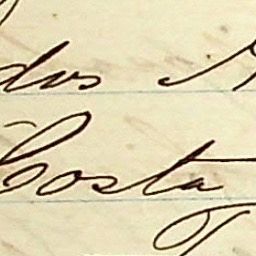 dos
Costa